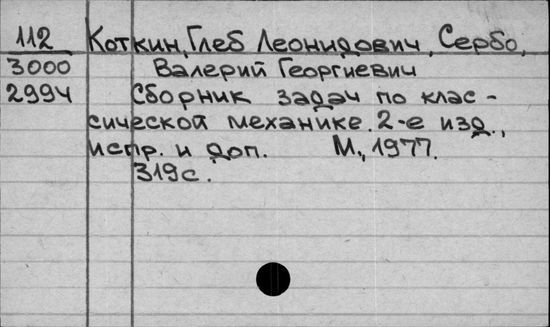 112 Коткин, Глеб Леонидович, Сербо,
3000 Валерий Георгиевич
2994 Сборник задач по клас-
сической механике. 2-е изд.,
испр. и доп. М., 1977.
319с.